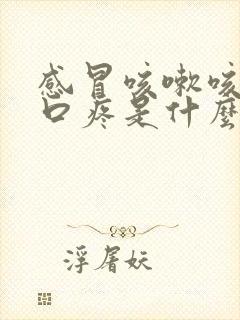 感冒咳嗽咳
口疼是什麼
浮屠妖